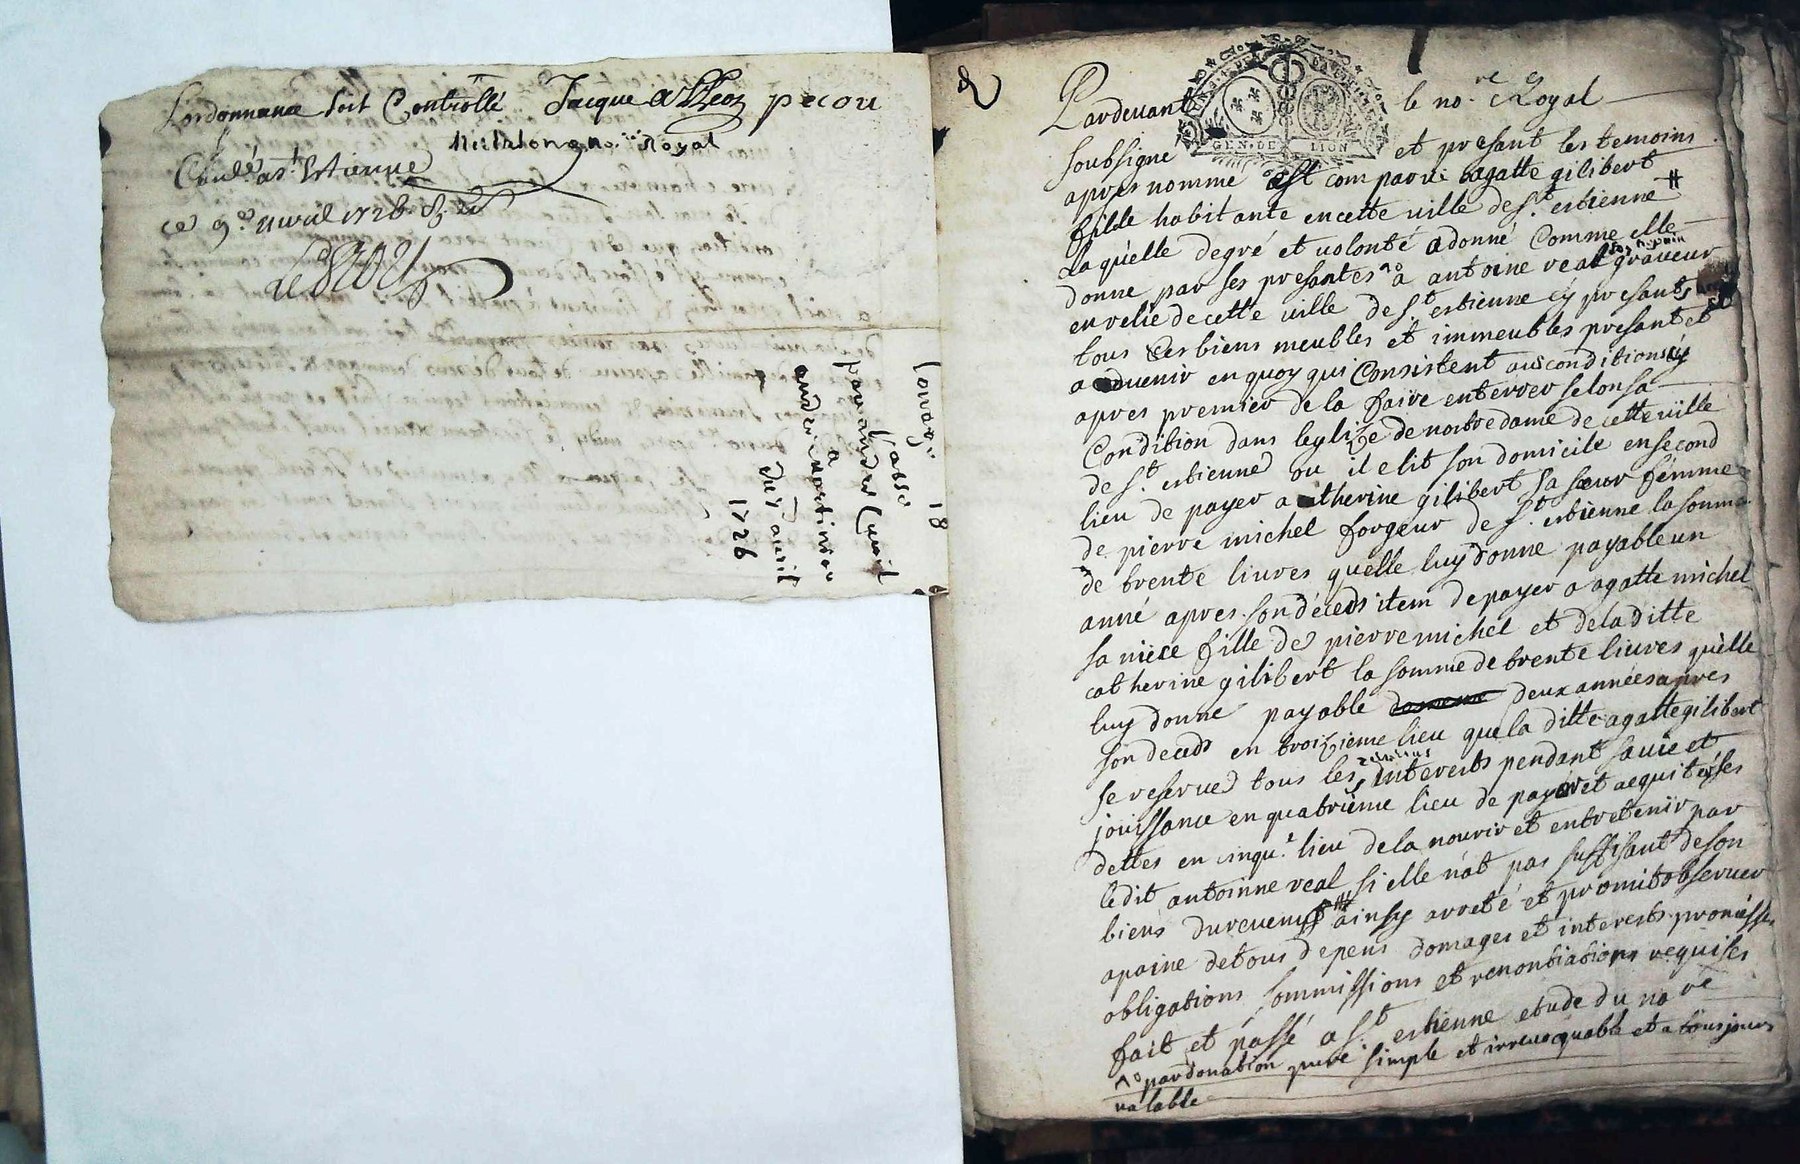 Lordonnance soit Controllé Jacque allleoz pecou
no.re Royal
Conllé a st Estienne
ce 9e avril 1726
18
Louage
passé
par ander Cunit
a
andré martinier
du 7 avril
1726
GEN. DE LION
Pardevant le no.re Royal
soubsigne et presant les temoins
apres nommé est comparue agatte gilibert
fille habitante en cette ville de St. estienne #
La quelle de gré et volonté a donné comme elle
donne par ses presantes a antoine real graveur
en relié de cette ville de St. estienne cy presant
tous ces biens meubles et immeubles presant et
advenir en quoy qui Consistent aux conditions cy
apres premier de la faire enterrer selon sa
Condition dans leglize de nostre dame de cette ville
de St. estienne ou il elit son domicile en second
lieu de payer a catherine gilibert sa sœur femme
de pierre michel forgeur de St. estienne la somme
de trente livres quelle luy donne payable un
anne apres son déceds item de payer a agatte michel
sa niece fille de pierre michel et de la ditte
catherine gilibert la somme de trente livres quelle
luy donne payable deux années apres
son deceds en troizieme lieu que la ditte agatte gilibert
se reserve tous les interests pendant sa vie et
jouissance en quatrieme lieu de payer et acquiter ses
dettes en cinqu.e lieu de la nourir et entretenir par
ledit antoinne real si elle n'at pas suffisant de son
biens du revenus # ainsy arreté et promit observer
a paine de tous depens domages et interests promesses
obligations sommissions et renontiations requises
fait et passé a St. estienne etude du no re
par donation pure simple et irrevocquable et a tousjours
valable